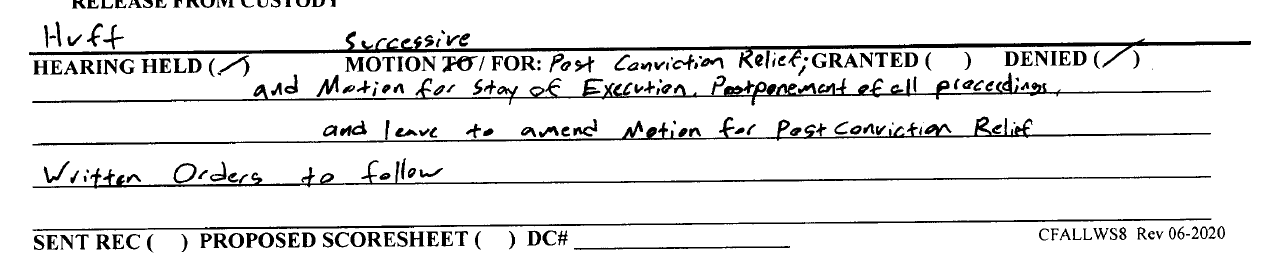 RELEASE FROM CUSTODY
Huff Successive
HEARING HELD (✓) MOTION TO / FOR: Post Conviction Relief; GRANTED ( ) DENIED (✓)
and Motion for Stay of Execution, Postponement of all proceedings,
and leave to amend Motion for Post Conviction Relief
Written Orders to follow
SENT REC ( ) PROPOSED SCORESHEET ( ) DC# ____________________
CFALLWS8 Rev 06-2020